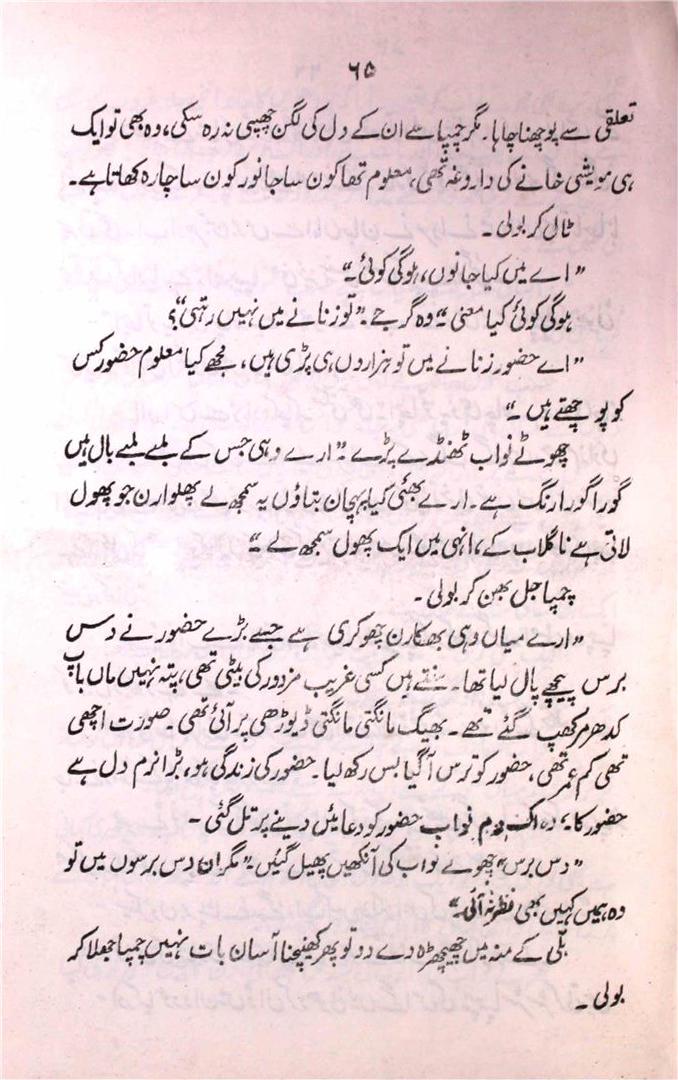 ۶۵
تعلقی سے پوچھنا چاہا۔ مگر چمپا سے ان کے دل کی لگن چھپی نہ رہ سکی، وہ بھی تو ایک
ہی مویشی خانے کی داروغہ تھی، معلوم تھا کون سا جانور کون سا چارہ کھاتا ہے۔
ٹال کر بولی۔
"اے میں کیا جانوں، ہوگی کوئی۔"
ہوگی کوئی کیا معنی"۔ وہ گرجے۔ "تو زنانے میں نہیں رہتی"؟
"اے حضور زنانے میں تو ہزاروں ہی پڑی ہیں، مجھے کیا معلوم حضور کس
کو پوچھتے ہیں۔"
چھوٹے نواب ٹھنڈے پڑے۔ "ارے وہی جس کے لمبے لمبے بال ہیں
گورا گورا رنگ ہے۔ ارے بھئی کیا پہچان بتاؤں یہ سمجھ لے پھلوارن جو پھول
لاتی ہے نا گلاب کے، انہی میں ایک پھول سمجھ لے۔"
چمپا جل بھن کر بولی۔
"ارے میاں وہی بھکارن چھوکری ہے جسے بڑے حضور نے دس
برس پیچھے پال لیا تھا۔ سنتے ہیں کسی غریب مزدور کی بیٹی تھی، پتہ نہیں ماں باپ
کدھر مرکھپ گئے تھے۔ بھیگ مانگتی مانگتی ڈیوڑھی پر آئی تھی۔ صورت اچھی
تھی کم عمر تھی، حضور کو ترس آگیا بس رکھ لیا۔ حضور کی زندگی ہو، بڑا نرم دل ہے
حضور کا"۔ وہ اک دم نواب حضور کو دعائیں دینے پر تل گئی۔
"دس برس" چھوٹے نواب کی آنکھیں پھیل گئیں۔ "مگر ان دس برسوں میں تو
وہ ہمیں کہیں بھی نظر نہ آئی۔"
بلّی کے منہ میں چھیچھڑہ دے دو تو پھر کھینچنا آسان بات نہیں چمپا جھلا کر
بولی۔